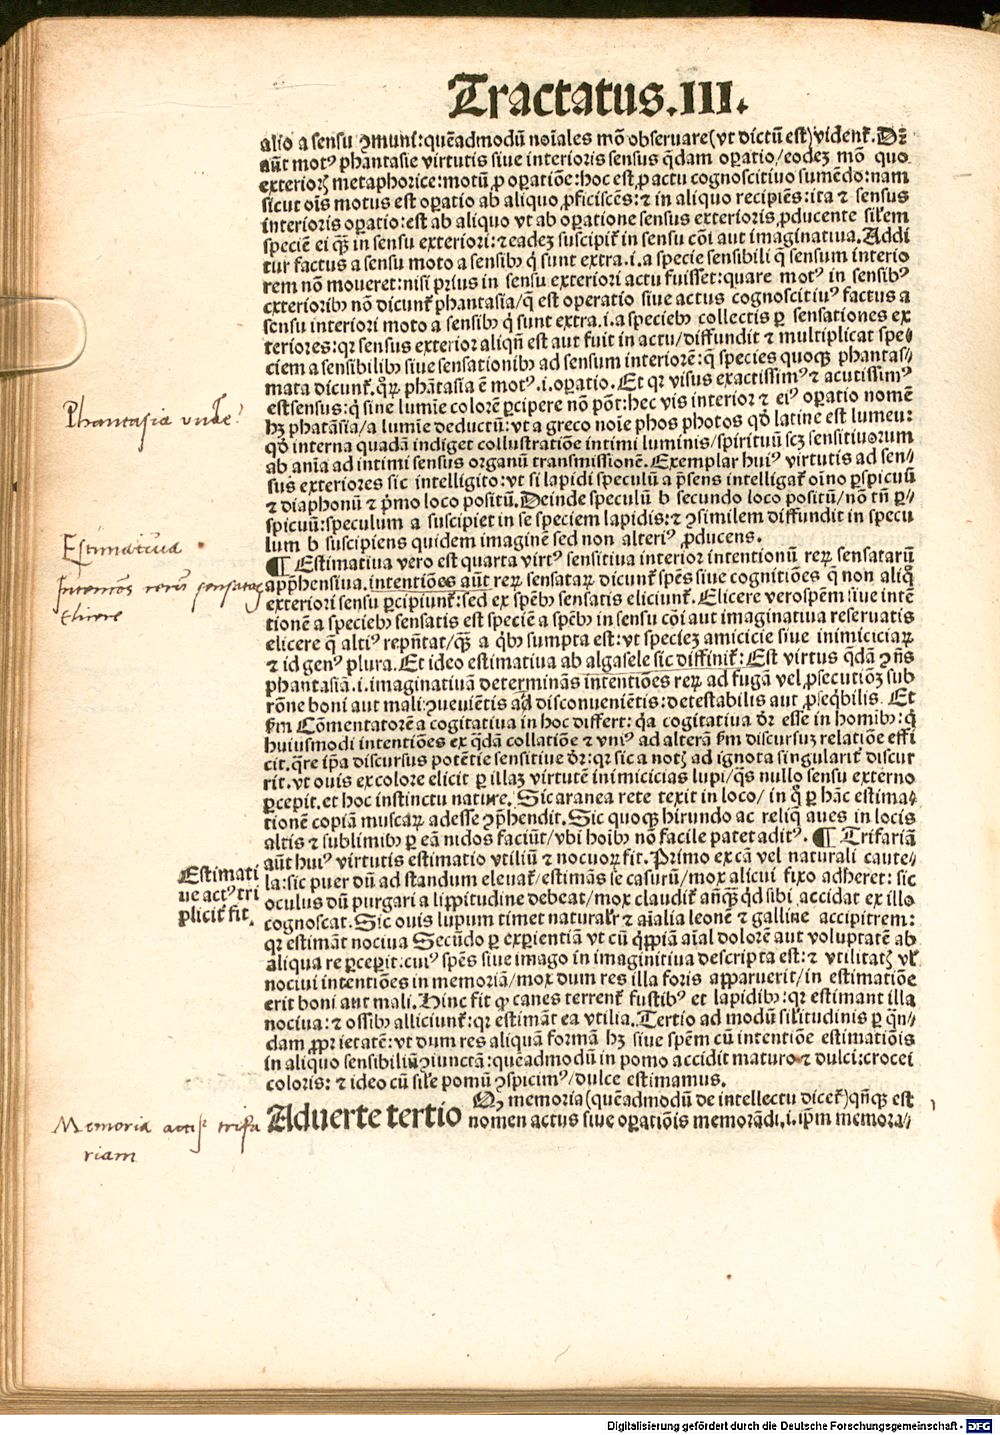 Tractatus.III.
alio a sensu ꝯmuni: quẽadmodũ noĩales mõ obseruare (vt dictũ est) vident᷑. Dr̃
aũt motꝰ phantasie virtutis siue interioris sensus q̃dam oꝑatio/ eodeʒ mõ quo
exterioꝝ metaphorice: motũ ꝓ oꝑatiõe: hoc est, ꝓ actu cognoscitiuo sumẽdo: nam
sicut oĩs motus est oꝑatio ab aliquo ꝓficiscẽs: ⁊ in aliquo recipiẽs: ita ⁊ sensus
interioris oꝑatio: est ab aliquo vt ab oꝑatione sensus exterioris, ꝓducente sil̃em
speciẽ ei q̃ʒ in sensu exteriori: ⁊ eadeʒ suscipit᷑ in sensu cõi aut imaginatiua. Addi
tur factus a sensu moto a sensibꝰ q̇ sunt extra .i. a specie sensibili q̃ sensum interio
rem nõ moueret: nisi prius in sensu exteriori actu fuisset: quare motꝰ in sensibꝰ
exterioribꝰ nõ dicunt᷑ phantasia/ q̃ est operatio siue actus cognoscitiuꝰ factus a
sensu interiori moto a sensibꝰ q̇ sunt extra .i. a speciebꝰ collectis ꝑ sensationes ex
teriores: qr sensus exterior aliqñ est aut fuit in actu/ diffundit ⁊ multiplicat spe/
ciem a sensibilibꝰ siue sensationibꝰ ad sensum interiorẽ: q̃ species quoqꝫ phantas/
mata dicunt᷑. q̃r̃ phãtasia ẽ motꝰ .i. oꝑatio. Et qr visus exactissimꝰ ⁊ acutissimꝰ
est sensus: q̇ sine lumĩe colorẽ ꝑcipere nõ põt: hec vis interior ⁊ eiꝰ oꝑatio nomẽ
hʒ phatãsia/ a lumĩe deductũ: vt a greco noĩe phos photos qd̃ latine est lumen:
qd̃ interna quadã indiget collustratiõe intimi luminis/ spirituũ scʒ sensitiuorum
ab anĩa ad intimi sensus organũ transmissionẽ. Exemplar huiꝰ virtutis ad sen/
sus exteriores sic intelligito: vt si lapidi speculũ a p̃sens intelligat᷑ oĩno ꝑspicuũ
⁊ diaphonũ ⁊ p̃mo loco positũ. Deinde speculũ b secundo loco positũ/ nõ tñ ꝑ/
spicuũ: speculum a suscipiet in se speciem lapidis: ⁊ ꝯsimilem diffundit in specu
lum b suscipiens quidem imaginẽ sed non alteriꝰ ꝓducens.
¶ Estimatiua vero est quarta virtꝰ sensitiua interior intentionũ reꝝ sensatarũ
app̃hensiua. intentiões aũt reꝝ sensataꝝ dicunt᷑ spẽs siue cognitiões q̃ non aliq̃
exteriori sensu ꝑcipiunt᷑: sed ex spẽbꝰ sensatis eliciunt᷑. Elicere vero spẽm siue intẽ
tionẽ a speciebꝰ sensatis est speciẽ a spẽbꝰ in sensu cõi aut imaginatiua reseruatis
elicere q̃ altiꝰ repñtat/ q̃ʒ a q̇bꝰ sumpta est: vt specieʒ amicicie siue inimiciciaꝝ
⁊ id genꝰ plura. Et ideo estimatiua ab algasele sic diffinit᷑: Est virtus q̃dã ꝯñs
phantasiã .i. imaginatiuã determinãs intentiões reꝝ ad fugã vel ꝓsecutiõʒ sub
rõne boni aut mali: ꝯueniẽtis ad disconueniẽtis: detestabilis aut ꝓseq̃bilis. Et
ẜm Cõmentatorẽ a cogitatiua in hoc differt: q̃a cogitatiua dr̃ esse in homibꝰ: q̇
huiusmodi intentiões ex q̃dã collatiõe ⁊ vniꝰ ad alterã ẜm discursuʒ relatiõe effi
cit. q̃re ip̃a discursus potẽtie sensitiue dr̃: qr sic a notʒ ad ignota singularit᷑ discur
rit. vt ouis ex colore elicit ꝑ illaʒ virtutẽ inimicicias lupi/ q̃s nullo sensu externo
ꝑcepit. et hoc instinctu nature. Sic aranea rete texit in loco/ in q̊ ꝑ hãc estima/
tionẽ copiã muscaꝝ adesse ꝯp̃hendit. Sic quoqꝫ hirundo ac reliq̃ aues in locis
altis ⁊ sublimibꝰ ꝑ eã nidos faciũt/ vbi hoĩbꝰ nõ facile patet aditꝰ. ¶ Trifariã
aũt huiꝰ virtutis estimatio vtiliũ ⁊ nocuoꝝ fit. Primo ex cã vel naturali caute/
la: sic puer dũ ad standum eleuat᷑/ estimãs se casurũ/ mox alicui fixo adheret: sic
oculus dũ purgari a lippitudine debeat/ mox claudit᷑ añq̃ʒ qd̃ sibi accidat ex illo
cognoscat. Sic ouis lupum timet naturalr̃ ⁊ aĩalia leonẽ ⁊ galline accipitrem:
qr estimãt nociua Secũdo ꝑ exꝑientiã vt cũ q̃ppiã aĩal dolorẽ aut voluptatẽ ab
aliqua re ꝑcepit: cuiꝰ spẽs siue imago in imaginitiua descripta est: ⁊ vtilitatʒ vl̃
nociui intentiões in memoriã/ mox dum res illa foris apparuerit/ in estimatiõe
erit boni aut mali. Hinc fit ꝙ canes terrent᷑ fustibꝰ et lapidibꝰ: qr estimant illa
nociua: ⁊ ossibꝰ alliciunt᷑: qr estimãt ea vtilia. Tertio ad modũ silĩtudinis ꝑ q̃n/
dam ꝓprietatẽ: vt dum res aliquam formã hʒ siue spẽm cũ intentiõe estimatiõis
in aliquo sensibiliũ ꝯiunctã: quẽadmodũ in pomo accidit maturo ⁊ dulci: crocei
coloris: ⁊ ideo cũ sil̃e pomũ ꝯspicimꝰ/ dulce estimamus.
Aduerte tertio Qꝫ memoria (quẽadmodũ de intellectu dicet᷑) qñqꝫ est
nomen actus siue oꝑatiõis memorãdi, .i. ip̃m memora/
Phantasia vnde?
Estimatiua
Intentiões rerũ sensataꝝ
elicere
Estimati
ue actꝰ tri
plicit᷑ fit.
Memoria actꝰ trifa
riam
Digitalisierung gefördert durch die Deutsche Forschungsgemeinschaft - DFG